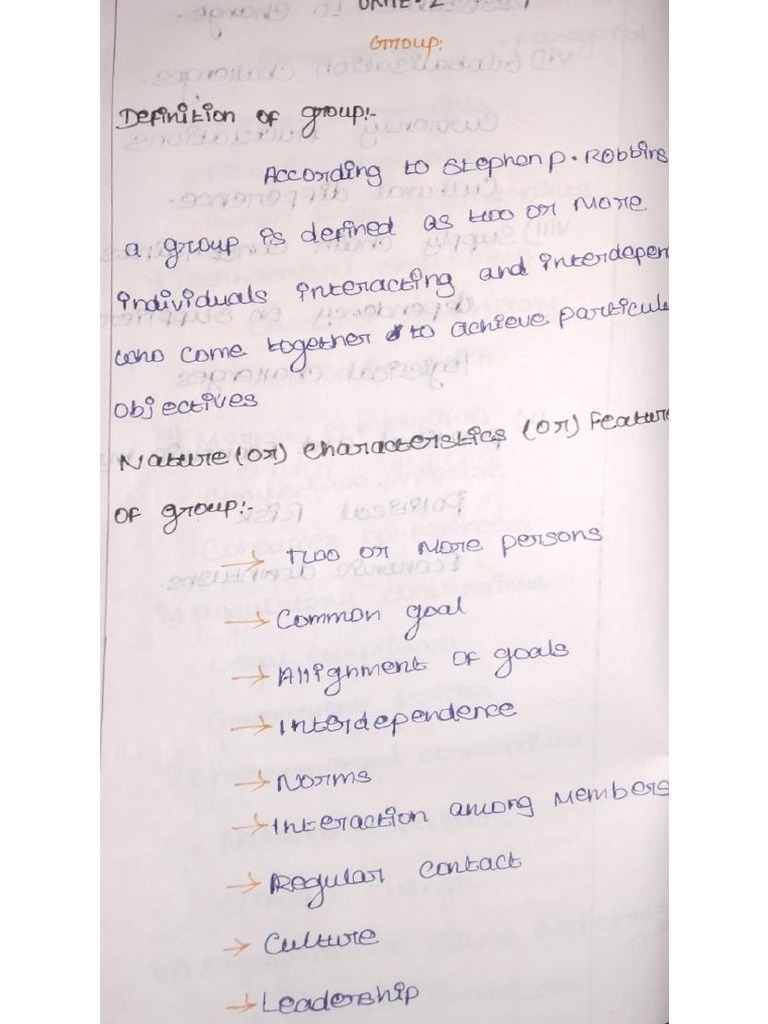 UNIT-2
Group:
Definition of group:-
According to Stephen P. Robbins
a group is defined as two or more
individuals interacting and interdepen
who come together to achieve particul
objectives
Nature (or) characteristics (or) Feature
of group:-
→ Two or more persons
→ Common goal
→ Allignment of goals
→ Interdependence
→ Norms
→ Interaction among members
→ Regular contact
→ Culture
→ Leadership